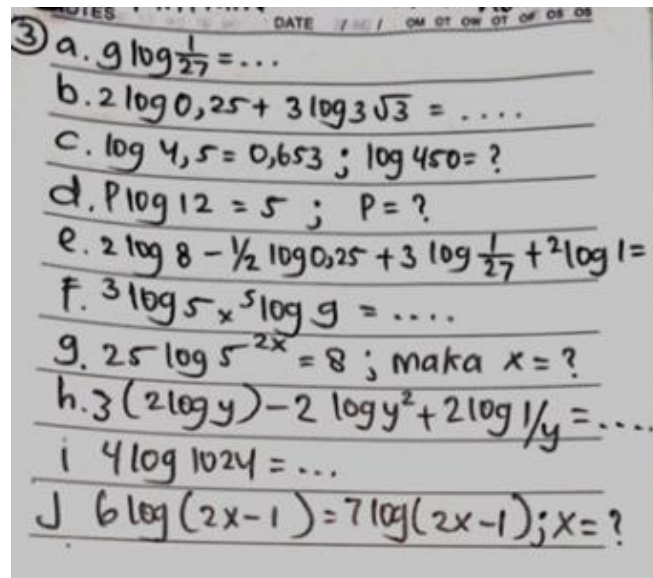 NOTES DATE OM OT OW OT OF OS OS
③ a. 9 log 1/27 = ...
b. 2 log 0,25 + 3 log 3√3 = ....
c. log 4,5 = 0,653 ; log 450 = ?
d. P log 12 = 5 ; P = ?
e. 2 log 8 - 1/2 log 0,25 + 3 log 1/27 + ² log 1 =
f. ³ log 5 x ⁵ log 9 = ....
g. 25 log 5 ²ˣ = 8 ; maka x = ?
h. 3 (2 log y) - 2 log y² + 2 log 1/y = ....
i 4 log 1024 = ...
J 6 log (2x-1) = 7 log (2x-1) ; x = ?